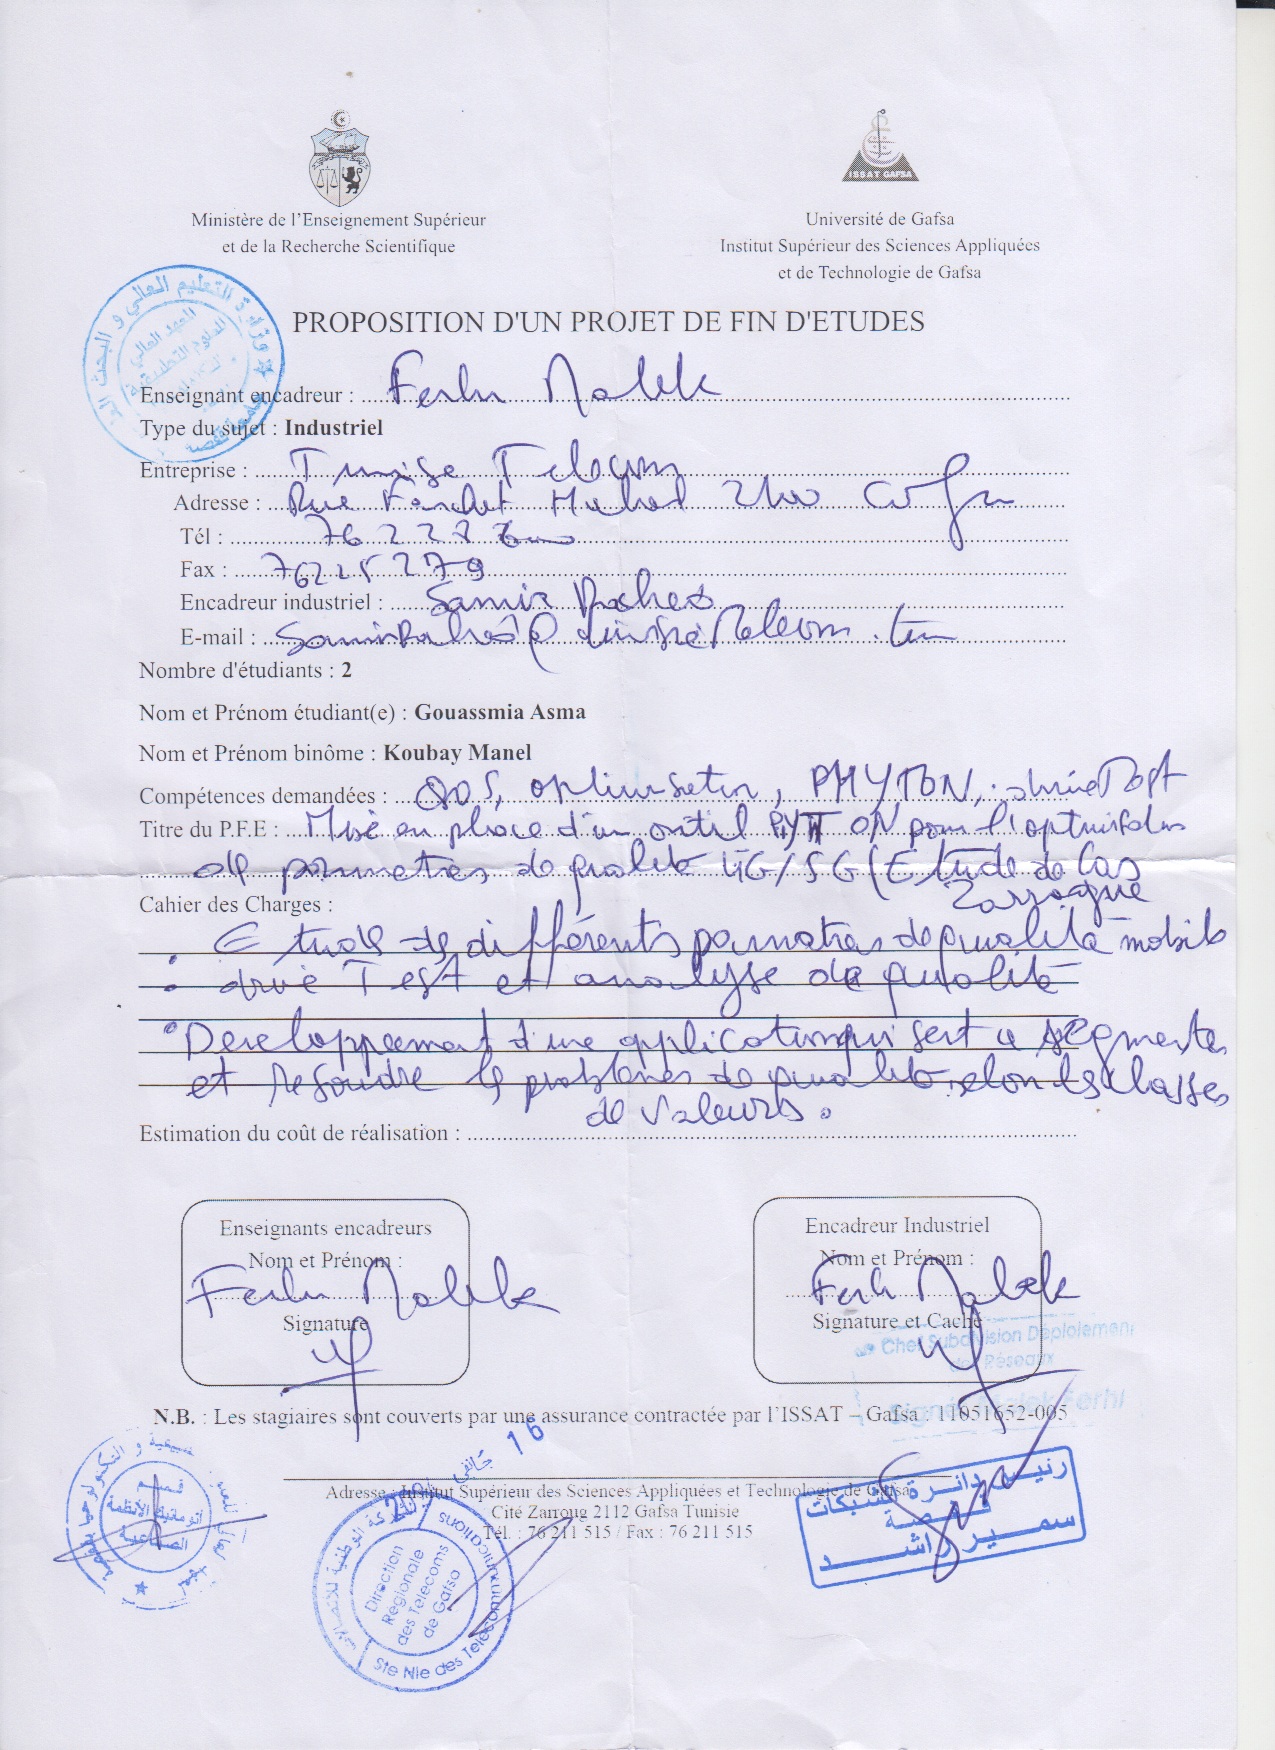 ISSAT GAFSA
Ministère de l'Enseignement Supérieur
et de la Recherche Scientifique
Université de Gafsa
Institut Supérieur des Sciences Appliquées
et de Technologie de Gafsa
وزارة التعليم العالي و البحث
المعهد العالي
للعلوم التطبيقية
PROPOSITION D'UN PROJET DE FIN D'ETUDES
Enseignant encadreur : Ferhi Malek
Type du sujet : Industriel
Entreprise : Tunisie Telecom
Adresse : Rue Farhet Hached 2100 Gafsa
Tél : 76 227
Fax : 76225279
Encadreur industriel : Samir Rached
E-mail :
Nombre d'étudiants : 2
Nom et Prénom étudiant(e) : Gouassmia Asma
Nom et Prénom binôme : Koubay Manel
Compétences demandées : QOS, optimisation, PHYTON, drive Test
Titre du P.F.E : Mise en place d'un outil PYTHON pour l'optimisation
de parametres de qualité 4G/5G (Etude de Cas
Zarrouque
Cahier des Charges :
. Etude de différents parametres de qualité mobile
. drive Test et analyse de qualité
° Developpement d'une application qui sert a segmenter
et resoudre les problemes de qualité selon les classes
de valeurs.
Estimation du coût de réalisation :
Enseignants encadreurs
Nom et Prénom :
Ferhi Malek
Signature
Encadreur Industriel
Nom et Prénom :
Ferhi Malek
Signature et Cachet
Chef Subdivision Déploiement
des Réseaux
Signé: Malek Ferhi
N.B. : Les stagiaires sont couverts par une assurance contractée par l'ISSAT – Gafsa : 11051652-005
16 جانفي
Adresse : Institut Supérieur des Sciences Appliquées et Technologie de Gafsa
Cité Zarroug 2112 Gafsa Tunisie
Tél. : 76 211 515 / Fax : 76 211 515
قسم
أتوماتيك الأنظمة
الصناعية
الشركة الوطنية للاتصالات
Direction
Régionale
des Telecoms
de Gafsa
Ste Nle des Telecommunications
رئيس دائرة الشبكات
قفصة
سمير راشد